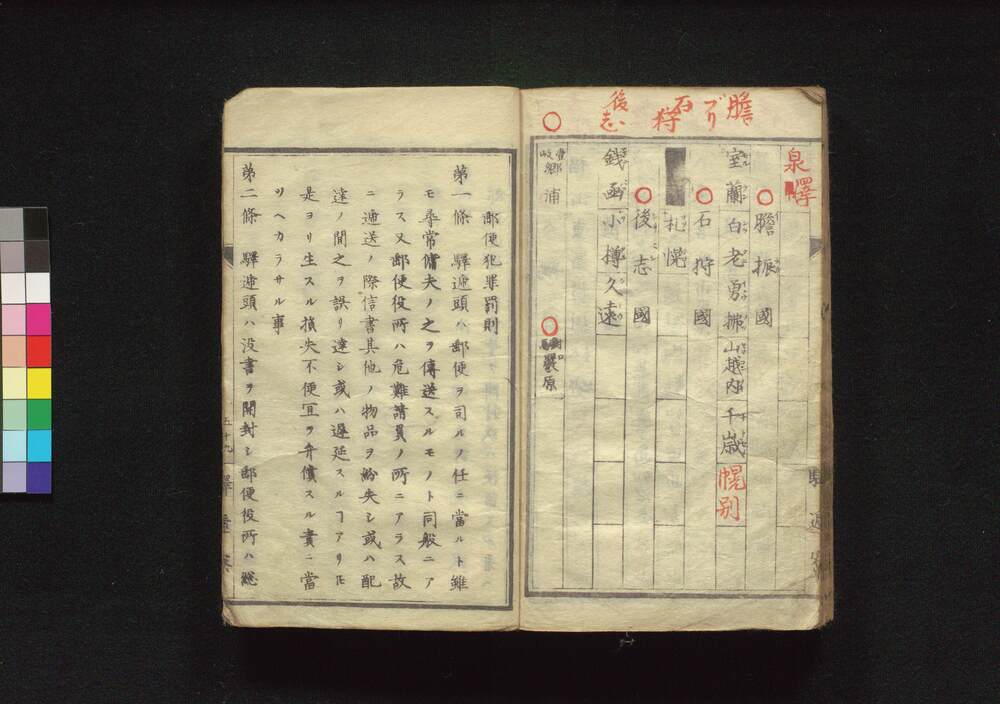 膽
ブリ
石
狩
後
志
泉澤
膽振國
室蘭白老勇拂山越内千歳幌別
石狩國
札幌
後志國
錢凾小樽久遠
壹岐
郷浦
對馬
嚴原
郵便犯罪罰則
第一條 驛遞頭ハ郵便ヲ司ルノ任ニ當ルト雖
モ尋常傭夫ノ之ヲ傳送スルモノト同般ニア
ラス又郵便役所ハ危難請負ノ所ニアラス故
ニ遞送ノ際信書其他ノ物品ヲ紛失シ或ハ配
達ノ間之ヲ誤リ達シ或ハ遲延スルヿアリ𪜈
是ヨリ生スル損失不便宜ヲ弁償スル責ニ當
リヘカラサル事
第二條 驛遞頭ハ没書ヲ開封シ郵便役所ハ總
五十九
驛遞寮